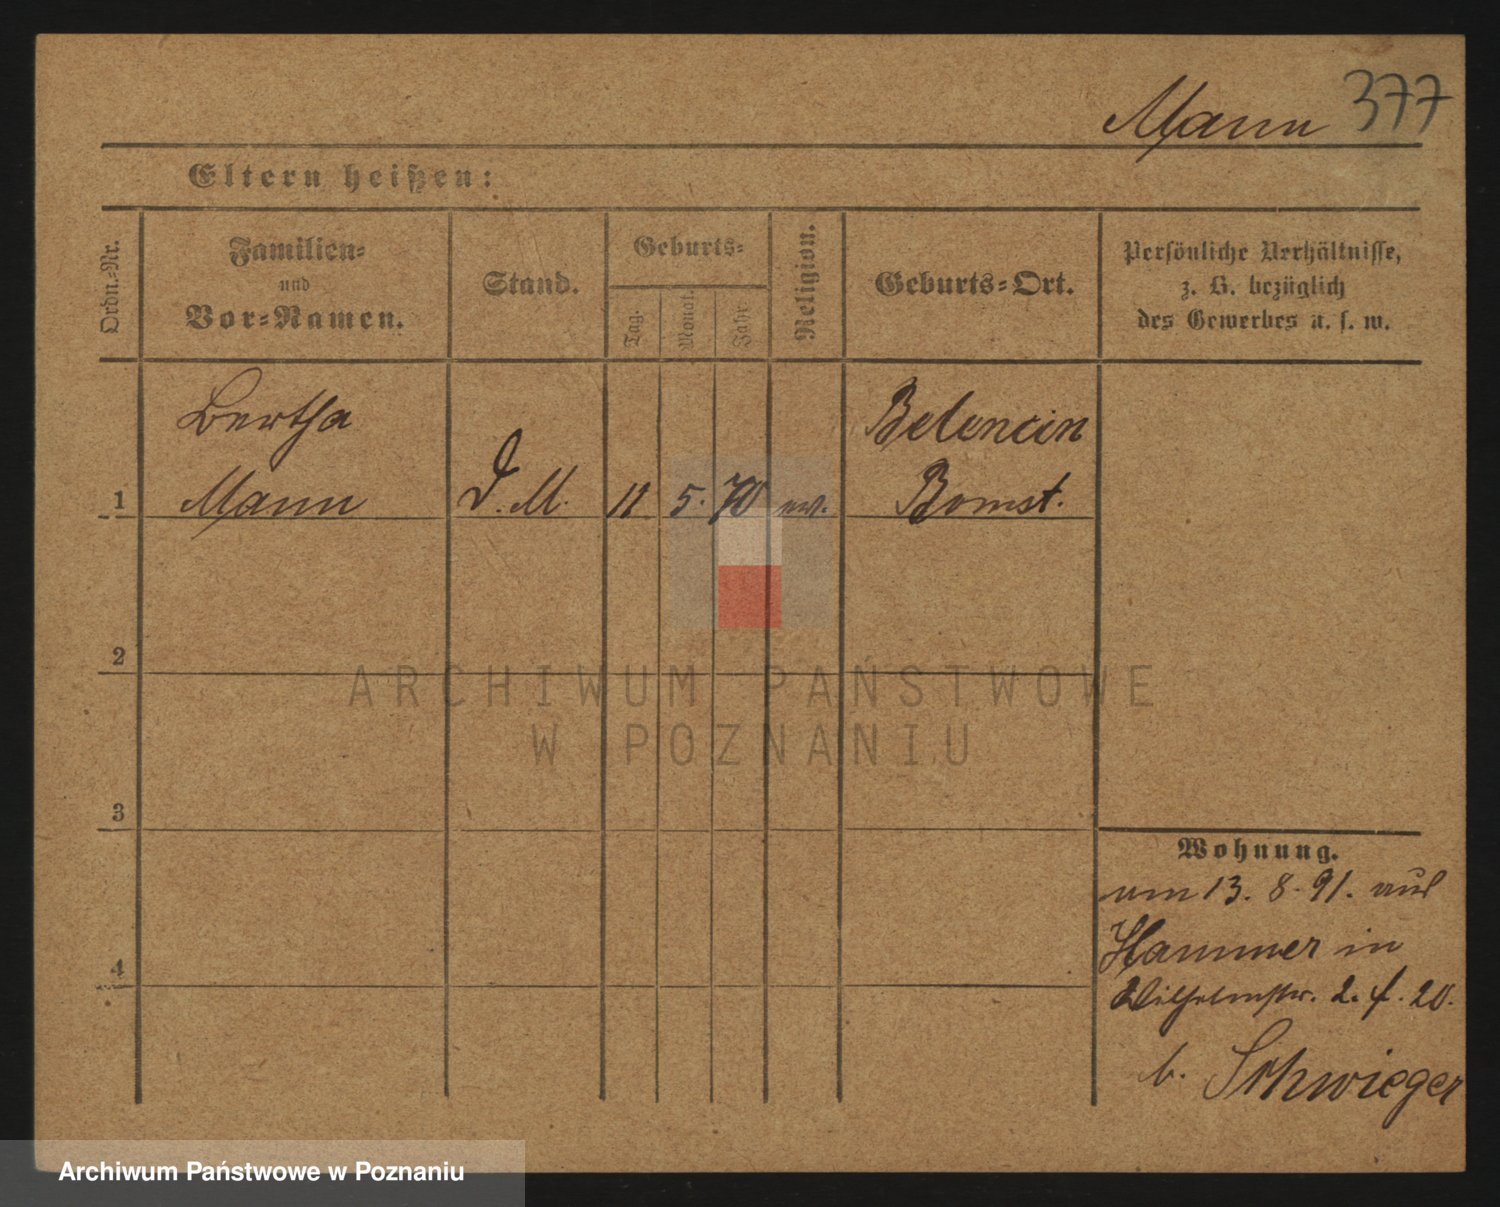 Mann 377
Eltern heißen:
Ordn.=Nr.
Familien=
und
Vor=Namen.
Stand.
Geburts=
Tag.
Monat.
Jahr
Religion.
Geburts=Ort.
Persönliche Verhältnisse,
z. B. bezüglich
des Gewerbes u. s. w.
Bertha
Belencin
1 Mann D. M. 11 5. 70 ev. Bomst.
2
ARCHIWUM PAŃSTWOWE
W POZNANIU
3
Wohnung.
am 13. 8. 91. aus
Hammer in
4
Wilhelmstr. 20.
b. Schwieger
Archiwum Państwowe w Poznaniu